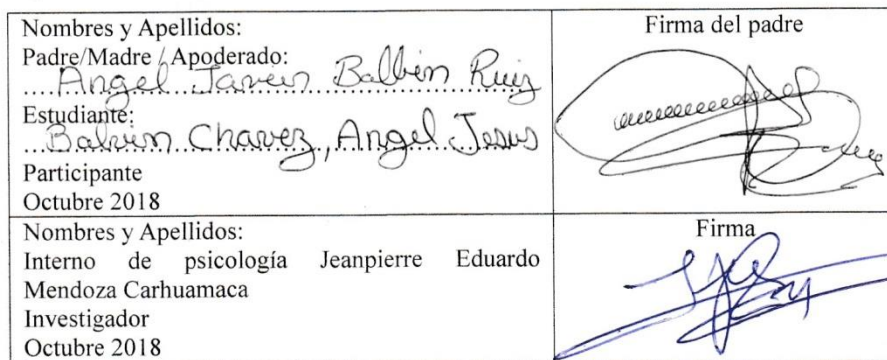 Nombres y Apellidos:
Padre/Madre / Apoderado:
Angel Javier Balbin Ruiz
Estudiante:
Balvin Chavez, Angel Jesus
Participante
Octubre 2018
Firma del padre
Nombres y Apellidos:
Interno de psicología Jeanpierre Eduardo
Mendoza Carhuamaca
Investigador
Octubre 2018
Firma